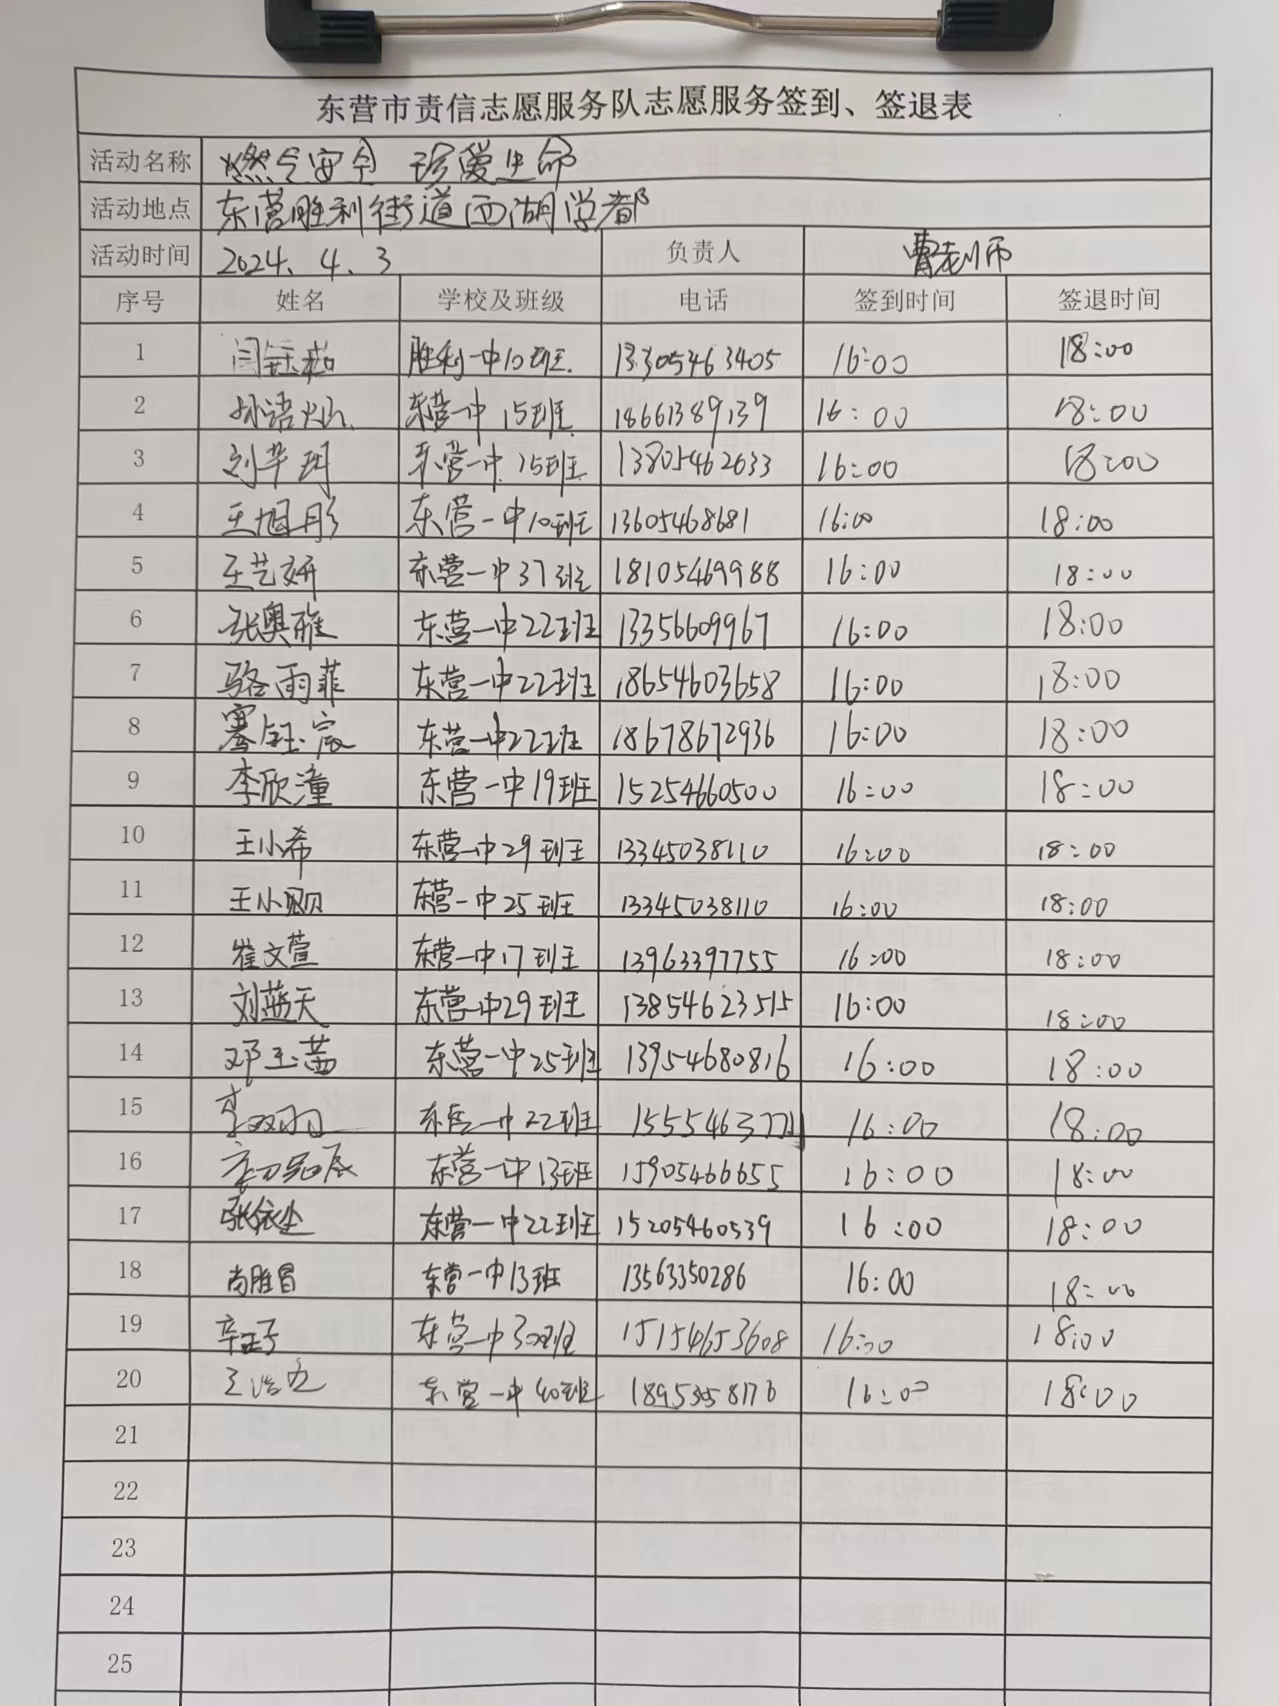 东营市责信志愿服务队志愿服务签到、签退表
活动名称 燃气安全 珍爱生命
活动地点 东营胜利街道西湖学都
活动时间 2024.4.3 负责人 曹老师
序号 姓名 学校及班级 电话 签到时间 签退时间
1 胜利一中10班 13305463405 16:00 18:00
2 东营一中15班 18661389139 16:00 18:00
3 刘芊珂 东营一中15班 13805462633 16:00 18:00
4 王旭彤 东营一中10班 13605468681 16:00 18:00
5 王艺妍 东营一中37班 18105469988 16:00 18:00
6 张奥雅 东营一中22班 13356609967 16:00 18:00
7 骆雨菲 东营一中22班 18654603658 16:00 18:00
8 骞钰宸 东营一中22班 18678672936 16:00 18:00
9 李欣潼 东营一中19班 15254660500 16:00 18:00
10 王小希 东营一中29班 13345038110 16:00 18:00
11 王小颐 东营一中25班 13345038110 16:00 18:00
12 崔文萱 东营一中17班 13963397755 16:00 18:00
13 刘蓝天 东营一中29班 13854623515 16:00 18:00
14 邓玉茜 东营一中25班 13954680816 16:00 18:00
15 李双羽 东营一中22班 16:00 18:00
16 东营一中13班 15905466655 16:00 18:00
17 东营一中22班 15205460539 16:00 18:00
18 尚胜昌 东营一中13班 13563350286 16:00 18:00
19 东营一中30班 15154653608 16:00 18:00
20 东营一中40班 18953558176 16:00 18:00
21
22
23
24
25